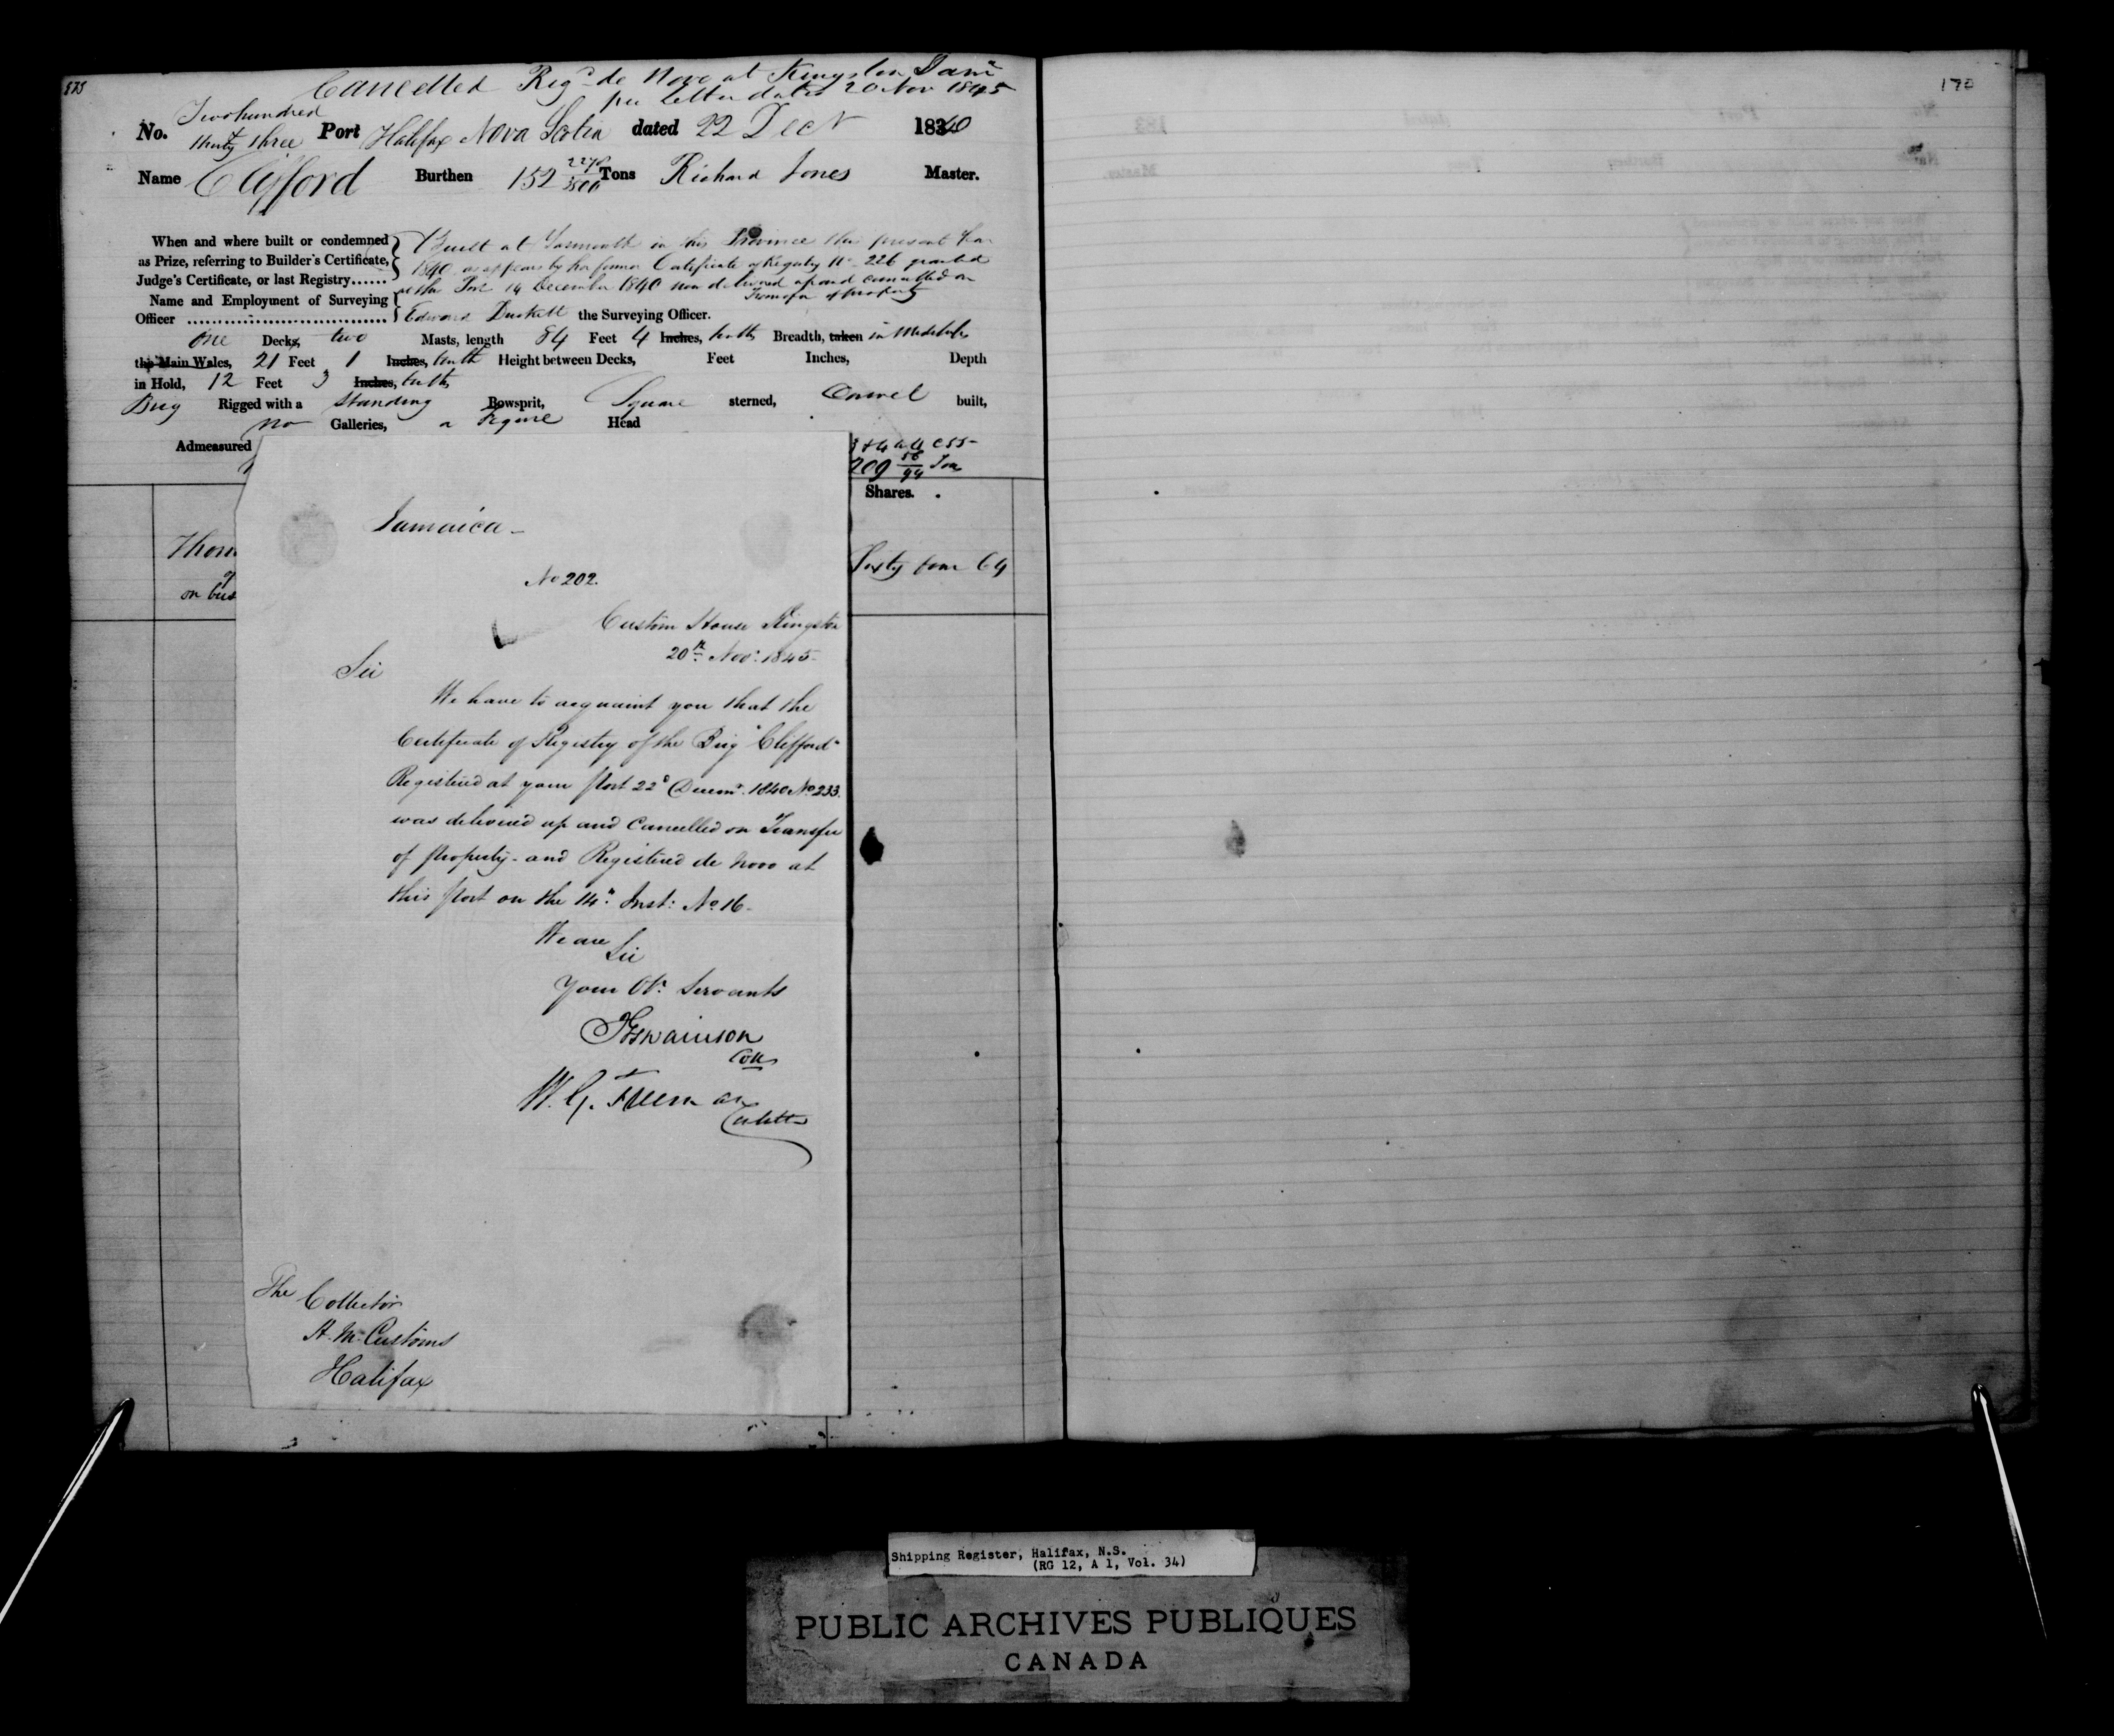 175
Cancelled Regd de Novo at Kingston Jamca
per letter dated 20 Nov 1845
No. Two hundred & thirty three Port Halifax Nova Scotia dated 22 Decr 1840
Name Clifford Burthen 152 Tons Richard Jones Master.
When and where built or condemned Built at Yarmouth in this Province this present Year
as Prize, referring to Builder's Certificate, 1840 as appears by her former Certificate of Registry No 226 granted
Judge's Certificate, or last Registry...... at this Port 14 December 1840 now delivered up and cancelled on
Transfer of property
Name and Employment of Surveying
Officer ................................ Edward Duckett the Surveying Officer.
One Decks, two Masts, length 84 Feet 4 Inches, tenths Breadth, taken in Midships
the Main Wales, 21 Feet 1 Inches, tenth Height between Decks, Feet Inches, Depth
in Hold, 12 Feet 3 Inches, tenths
Brig Rigged with a Standing Bowsprit, Square sterned, Carvel built,
no Galleries, a Figure Head
Admeasured
209 Tons
Shares.
Thom
of
on bus
Sixty four 64
Jamaica -
No 202.
Custom House Kingston
20th Novr 1845-
Sir
We have to acquaint you that the
Certificate of Registry of the Brig "Clifford"
Registered at your Port 22d Decemr. 1840 No 233.
was delivered up and Cancelled on Transfer
of Property - and Registered de Novo at
this Port on the 14th Inst: No 16-
We are
Sir
Your Obt. Servants
Swainson
Coll
W. G. Freeman
The Collector
H. M. Customs
Halifax
170
Shipping Register, Halifax, N.S.
(RG 12, A 1, Vol. 34)
PUBLIC ARCHIVES PUBLIQUES
CANADA